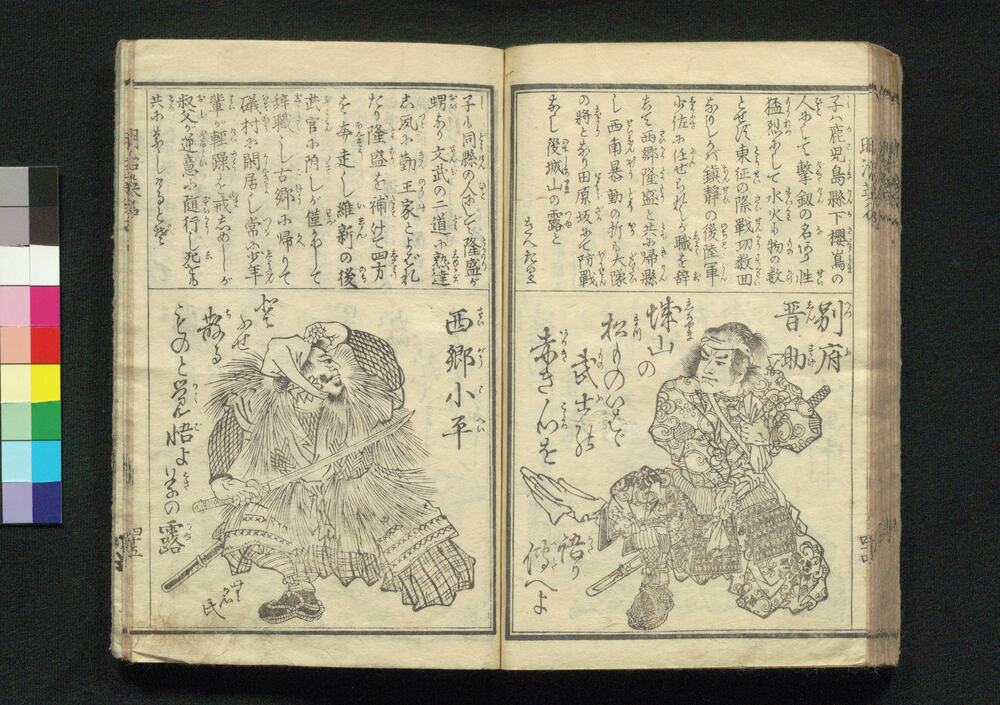 子ハ鹿児島縣下櫻島の
人にして撃釼の名あり性
猛烈にして水火も物の数
とせず東征の際戦功数回
なりしかバ鎮静の後陸軍
少佐に任ぜられしが職を辞
して西郷隆盛と共に帰縣
し西南暴動の折も大隊
の将となり田原坂にて防戦
なし後城山の露と
きえたり
別府
晋助
城山の
松ものいはゞ
武士の
赤き心を
語り
傳へよ
子も同縣の人にして隆盛が
甥なり文武の二道に熟達
し夙に勤王家とよばれ
たり隆盛を補けて四方
を奔走し維新の後
武官に附しが僅にして
辞職し古郷に帰りて
礒村に閑居し常に少年
輩が軽躁を戒しめしが
叔父が逆意に随行し死をも
共になしけるとぞ
西郷小平
散る
ものと覚悟よ
露